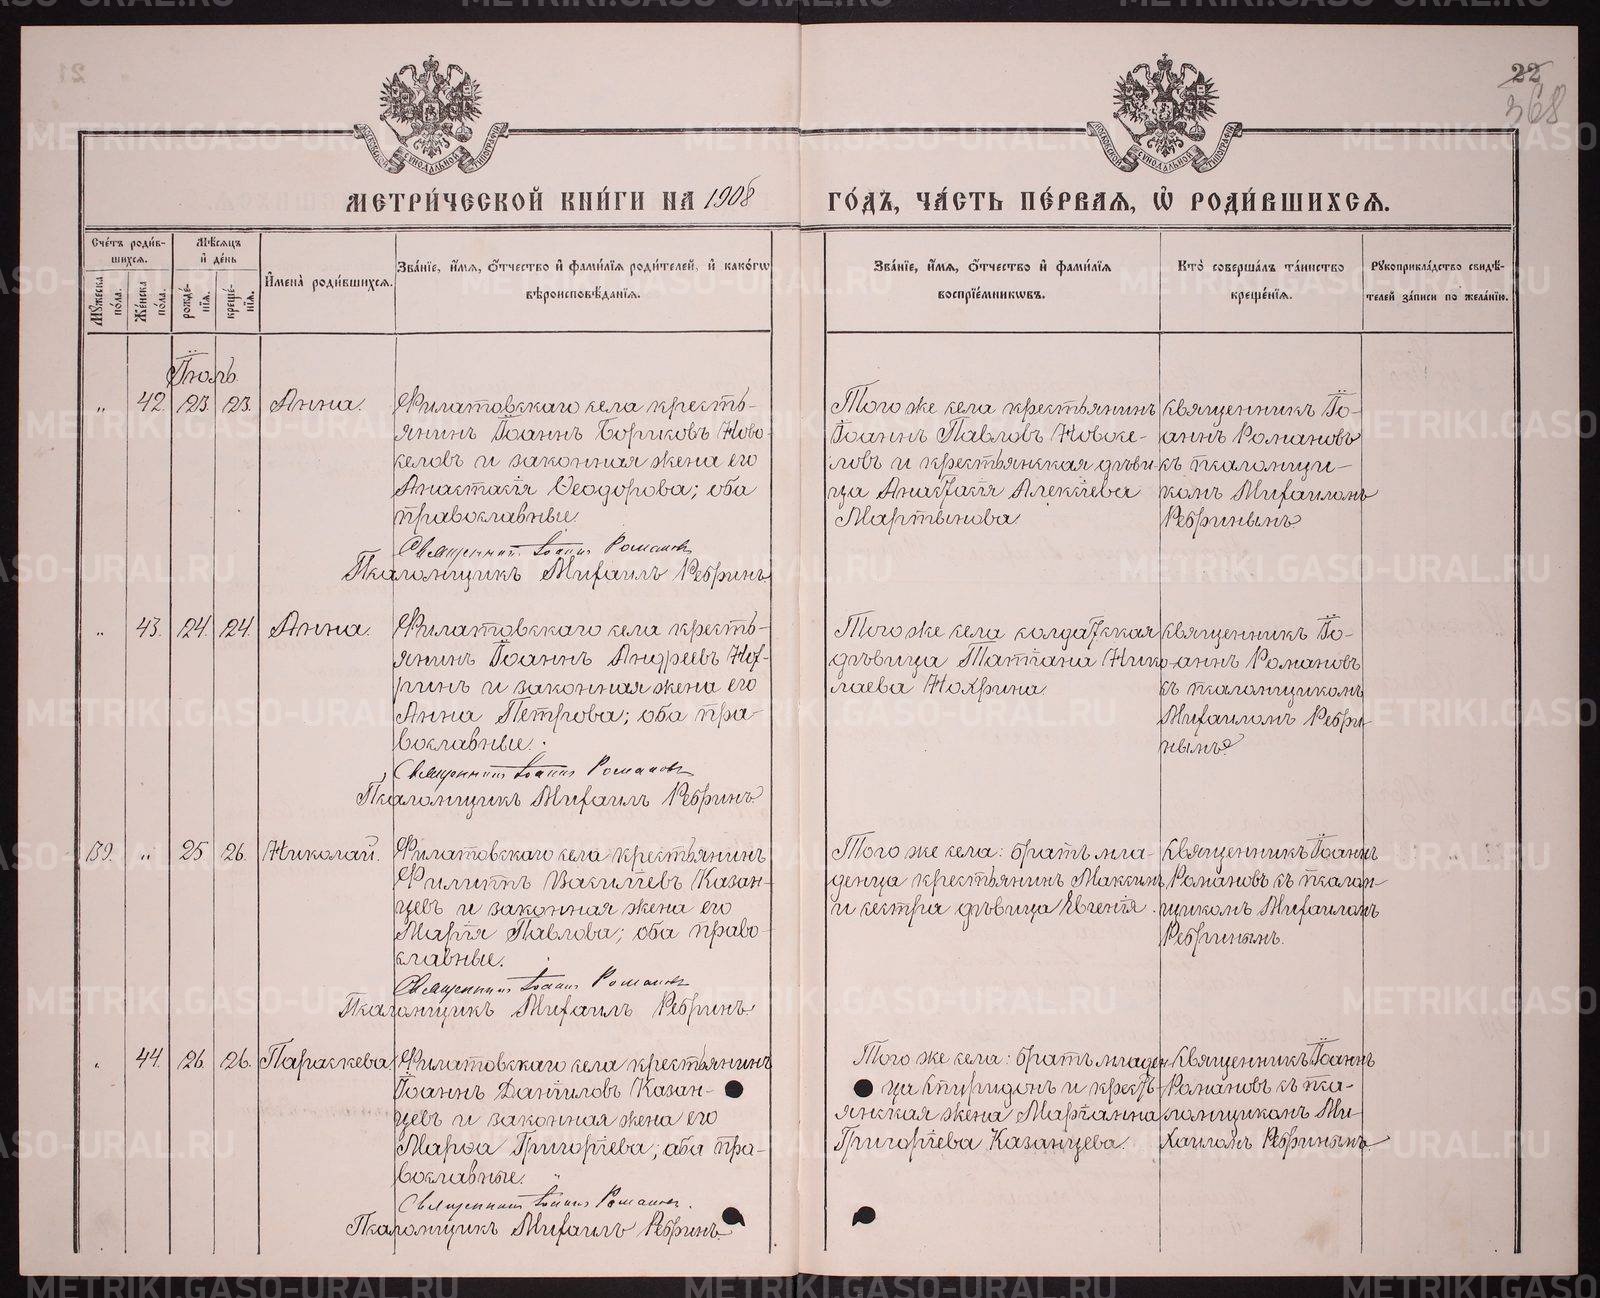 22
368
МОСКОВСКОЙ СѴНОДАЛЬНОЙ ТИПОГРАФІИ
МОСКОВСКОЙ СѴНОДАЛЬНОЙ ТИПОГРАФІИ
МЕТРИ́ЧЕСКОЙ КНИ́ГИ НА 1908 ГО́ДЪ, ЧА́СТЬ ПЕ́РВАЯ, Ѡ҆ РОДИ́ВШИХСЯ.
Сче́тъ роди́в-
шихся.
Мѣ́сяцъ
и҆ де́нь
Мꙋ́жеска по́ла.
Же́нска по́ла.
рожде́-
нїя.
креще́-
нїя.
И҆мена̀ роди́вшихся.
Зва́нїе, и҆́мя, ѻ҆́тчество и҆ фами́лїя роди́телей, и҆ како́гѡ
вѣроисповѣ́данїя.
Зва́нїе, и҆́мя, ѻ҆́тчество и҆ фами́лїя
воспрїе́мникѡвъ.
Кто̀ соверша́лъ та́инство
креще́нїя.
Рꙋкоприкла́дство свидѣ́-
телей за́писи по жела́нїю.
Іюль.
„ 42. 23. 23. Анна.
Филатовскаго села кресть-
янинъ Іоаннъ Борисовъ Ново-
селовъ и законная жена его
Анастасія Ѳеодорова; оба
православные.
Священникъ Іоаннъ Романовъ
Псаломщикъ Михаилъ Ребринъ
Того же села крестьянинъ
Іоаннъ Павловъ Новосе-
ловъ и крестьянская дѣви-
ца Анастасія Алексіева
Мартынова
Священникъ Іо-
аннъ Романовъ
съ псаломщи-
комъ Михаиломъ
Ребринымъ
„ 43. 24. 24. Анна.
Филатовскаго села кресть-
янинъ Іоаннъ Андреевъ Нох-
ринъ и законная жена его
Анна Петрова; оба пра-
вославные.
Священникъ Іоаннъ Романовъ
Псаломщикъ Михаилъ Ребринъ
Того же села солдатская
дѣвица Татіана Нико-
лаева Нохрина.
Священникъ Іо-
аннъ Романовъ
съ псаломщикомъ
Михаиломъ Ребри-
нымъ
39. „ 25 26. Николай.
Филатовскаго села крестьянинъ
Филиппъ Василіевъ Казан-
цевъ и законная жена его
Марія Павлова; оба право-
славные.
Священникъ Іоаннъ Романовъ
Псаломщикъ Михаилъ Ребринъ
Того же села: братъ мла-
денца крестьянинъ Максимъ
и сестра дѣвица Евгенія.
Священникъ Іоаннъ
Романовъ съ псалом-
щикомъ Михаиломъ
Ребринымъ.
„ 44. 26. 26. Параскева
Филатовскаго села крестьянинъ
Іоаннъ Даніиловъ Казан-
цевъ и законная жена его
Марѳа Григоріева; оба пра-
вославные.
Священникъ Іоаннъ Романовъ.
Псаломщикъ Михаилъ Ребринъ.
Того же села: братъ младен-
ца Спиридонъ и кресть-
янская жена Маріанна
Григоріева Казанцева.
Священникъ Іоаннъ
Романовъ съ пса-
ломщикомъ Ми-
хаиломъ Ребринымъ.
METRIKI.GASO-URAL.RU